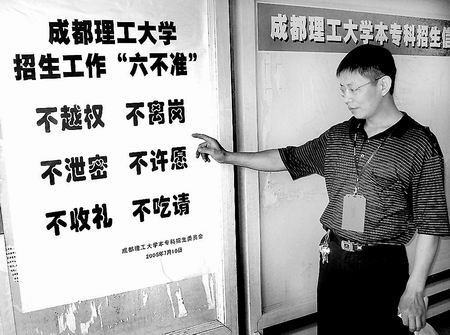 成都理工大学
招生工作“六不准”
不越权 不离岗
不泄密 不许愿
不收礼 不吃请
成都理工大学本专科招生委员会
2005年7月10日
成都理工大学本专科招生信